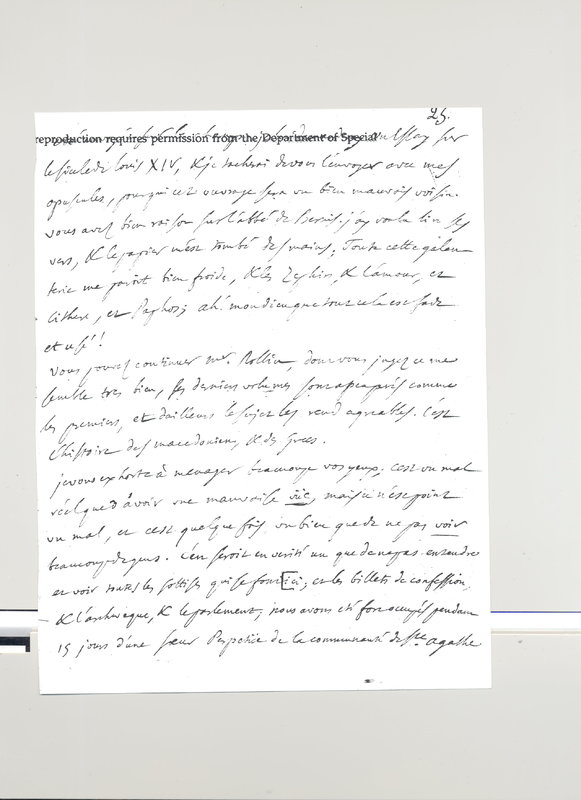 25.
reproduction requires permission from the Department of Special
le siecle de louis XIV, & je tacherai de vous l'envoyer avec mes
opuscules, pourquoi cet ouvrage sera un bien mauvois voisin.
vous avez bien raison sur l'abbé de Bernis. j'ay voulu lire ses
vers, & le papier m'est tombé des mains; Toute cette galan
terie me paroit bien froide, & les Zephirs, & l'amour, et
Cithere, et Paphos; ah! mon dieu que tout cela est fade
et usé!
vous pouvez continuer mr. Rollin, dont vous jugez ce me
semble tres bien, ses derniers volumes sont a peu pres comme
les premiers, et d'ailleurs le sujet les rend agreables. C'est
l'histoire des macedoniens, & des Grecs.
je vous exhorte à menager beaucoup vos yeux; c'est un mal
réel que d'avoir une mauvaise vüe, mais ce n'est point
un mal, et c'est quelque fois un bien que de ne pas voir
beaucoup de gens. C'en seroit en verité un que de ne pas entendre
et voir toutes les sottises qui se font ici; et les billets de confession,
& l'archeveque, & le parlement; nous avons été fort occupés pendant
15 jours d'une soeur Perpetüe de la communauté de Ste. agathe